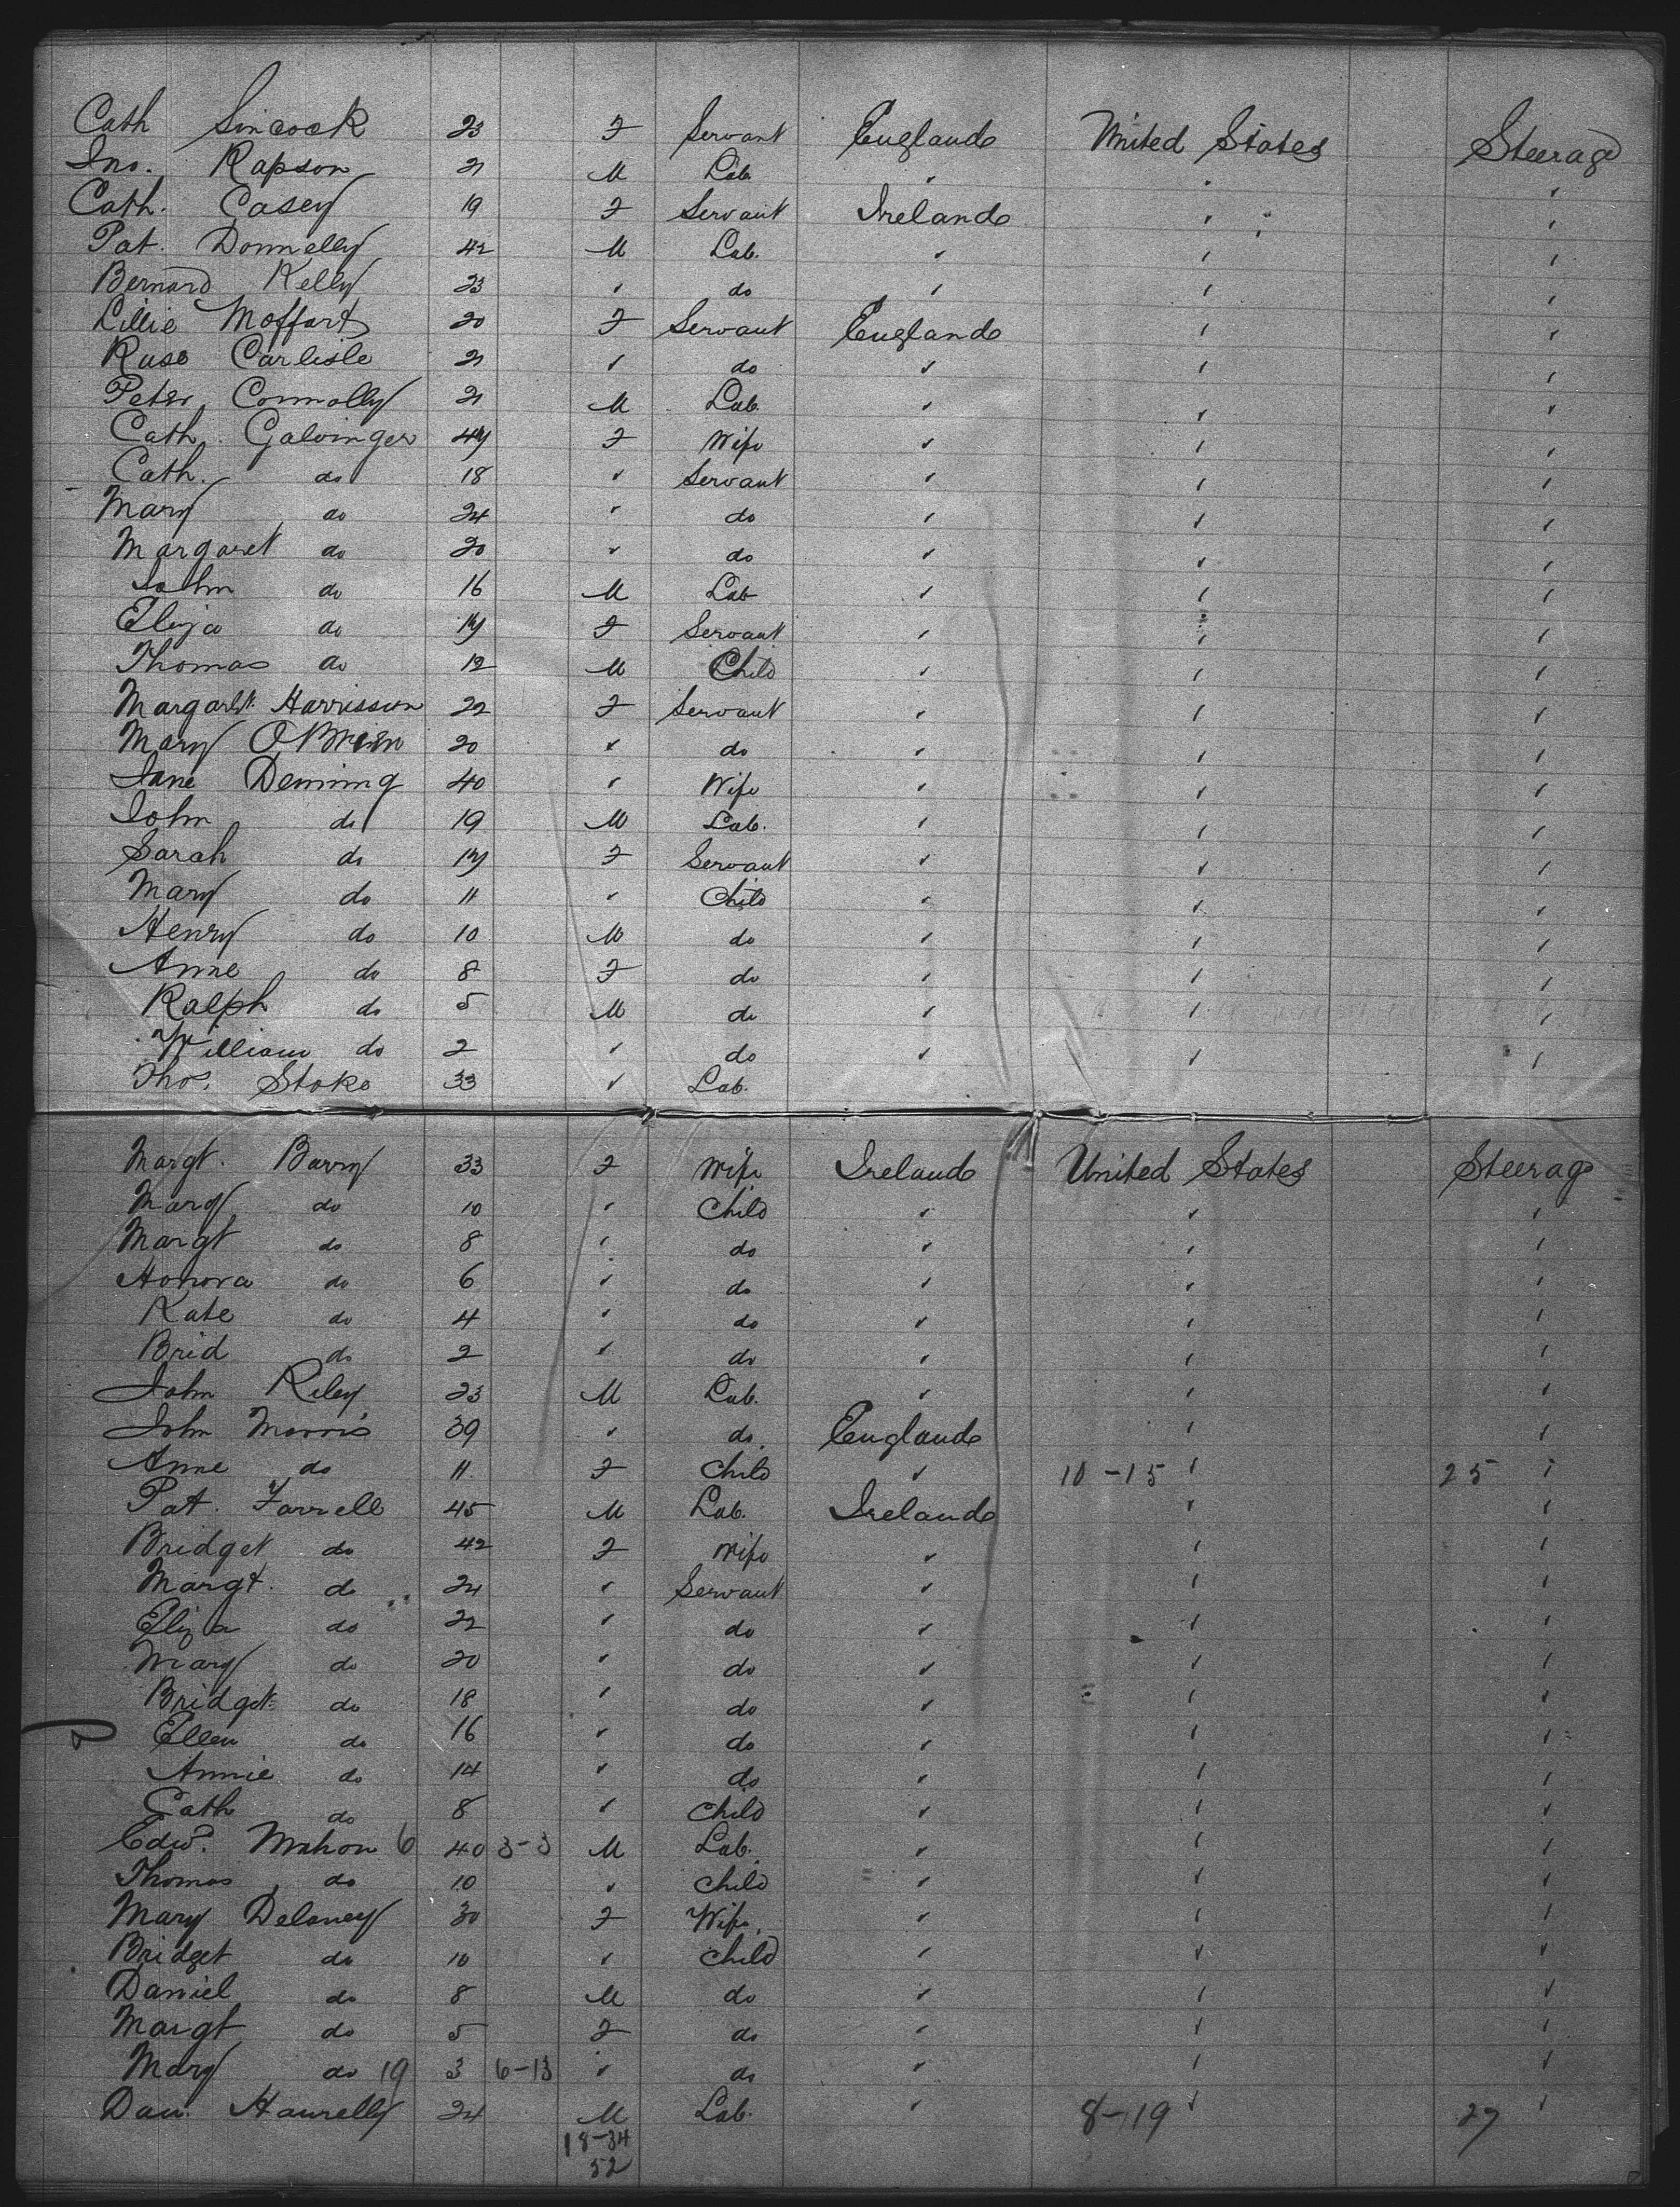 Cath Sincock 23 F Servant England United States Steerage
Jno. Rapson 21 M Lab. " " "
Cath. Casey 19 F Servant Ireland " "
Pat. Donnelly 42 M Lab. " " "
Bernard Kelly 23 " do " " "
Lillie Moffart 20 F Servant England " "
Rose Carlisle 21 " do " " "
Peter Connolly 21 M Lab. " " "
Cath. Galvinger 44 F Wife " " "
Cath. do 18 " Servant " " "
Mary do 24 " do " " "
Margaret do 20 " do " " "
John do 16 M Lab " " "
Eliza do 14 F Servant " " "
Thomas do 12 M Child " " "
Margaret Harrisson 22 F Servant " " "
Mary O'Brien 20 " do " " "
Jane Deming 40 " Wife " " "
John do 19 M Lab. " " "
Sarah do 14 F Servant " " "
Mary do 11 " Child " " "
Henry do 10 M do " " "
Anne do 8 F do " " "
Ralph do 5 M do " " "
William do 2 " do " " "
Thos. Stoke 33 " Lab.
Margt. Barry 33 F Wife Ireland United States Steerag
Mary do 10 " Child " " "
Margt do 8 " do " " "
Honora do 6 " do " " "
Kate do 4 " do " " "
Brid do 2 " do " " "
John Riley 23 M Lab. " " "
John Morris 39 " do. England " "
Anne do 11 F Child " 10-15 " 25 "
Pat. Farrell 45 M Lab. Ireland " "
Bridget do 42 F Wife " " "
Margt. do 24 " Servant " " "
Eliza do 22 " do " " "
Mary do 20 " do " " "
Bridget do 18 " do " " "
Ellen do 16 " do " " "
Annie do 14 " do " " "
Cath do 8 " Child " " "
Edwd. Mahon 6 40 3-3 M Lab. " " "
Thomas do 10 " Child " " "
Mary Delaney 30 F Wife " " "
Bridget do 10 " Child " " "
Daniel do 8 M do " " "
Margt do 5 F do " " "
Mary do 19 3 6-13 " do " " "
Dan. Haurelly 24 M Lab. " 8-19 " 27 "
18-34
52